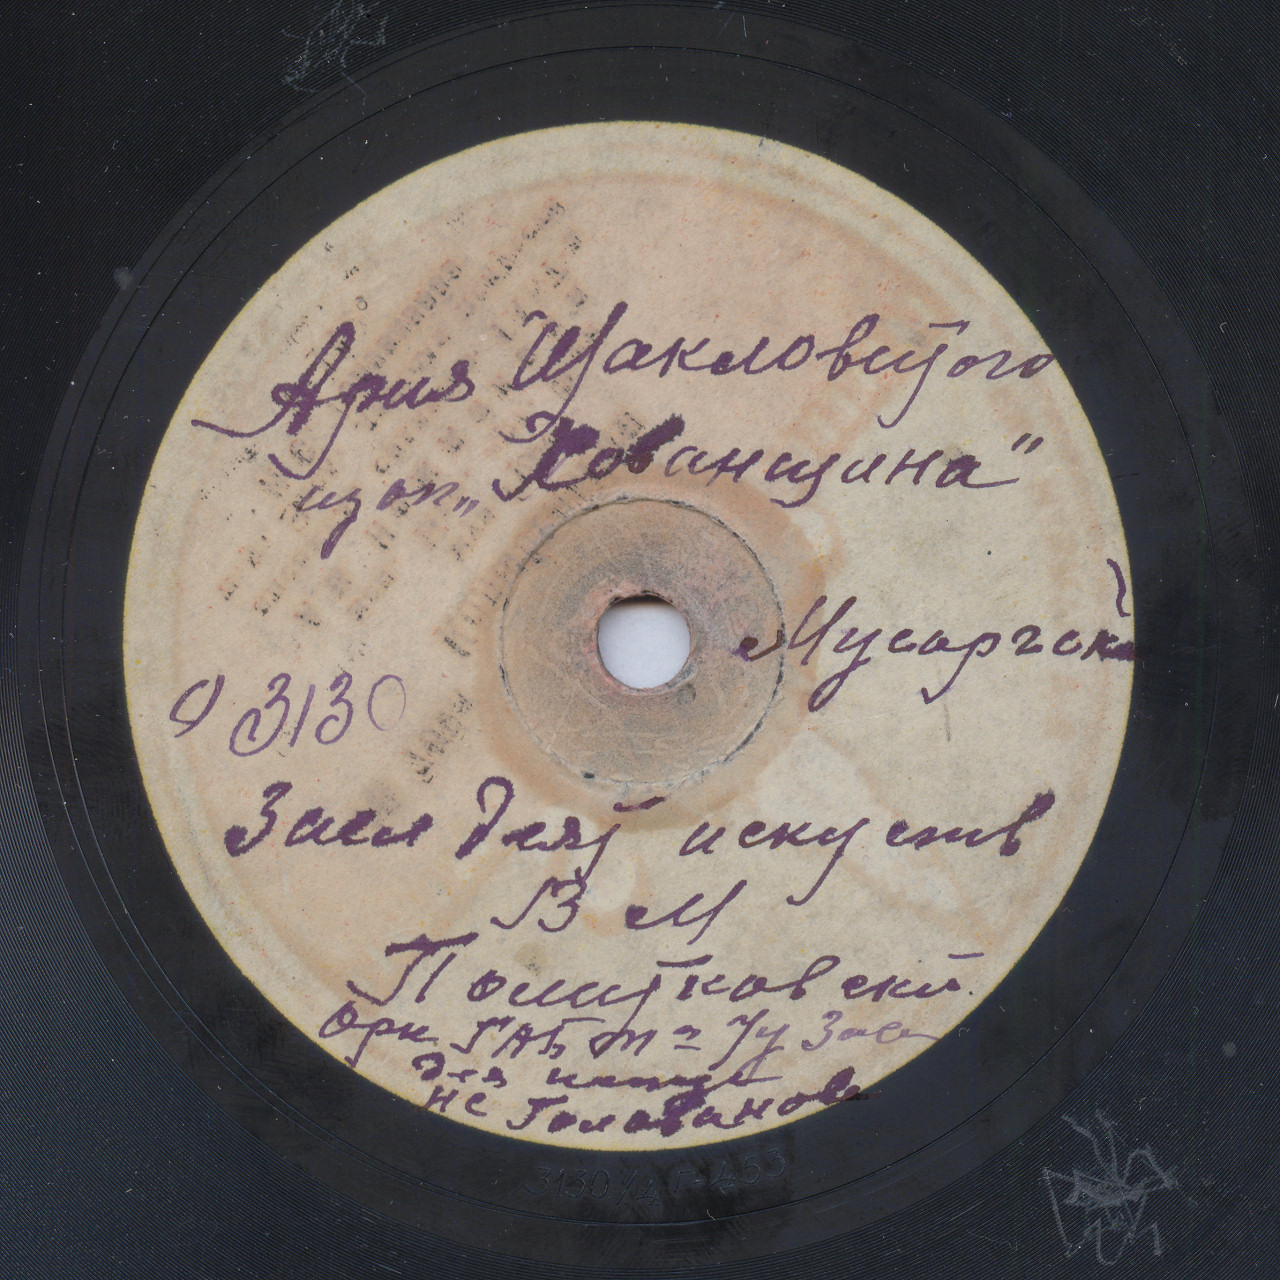 Ария Шакловитого
из оп „Хованщина"
Мусоргский
03130
Засл деят искуств
В М
Политковский
Орк ГАБТ п/у Зас
дея искус
НС Голованов
3130/4